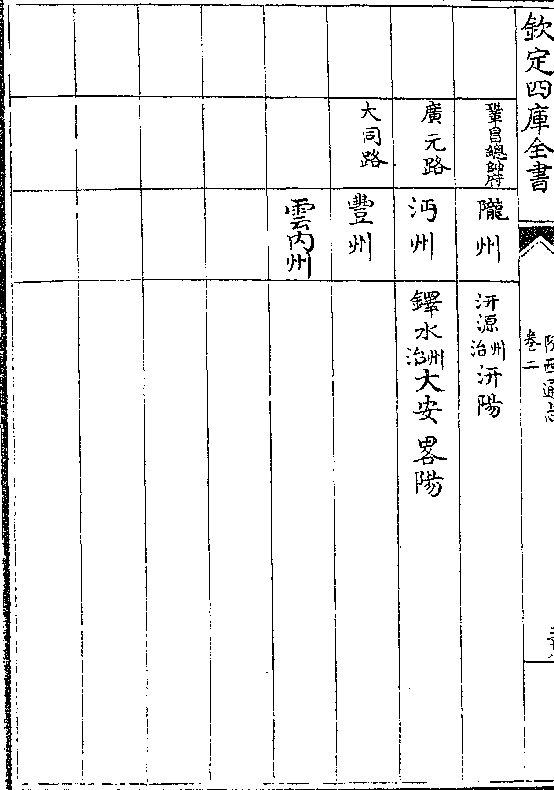 欽定四庫全書
陜西通志
卷二
鞏昌總帥府 隴州 汧源州治 汧陽
廣元路 沔州 鐸水州治 大安 畧陽
大同路 豐州
雲内州